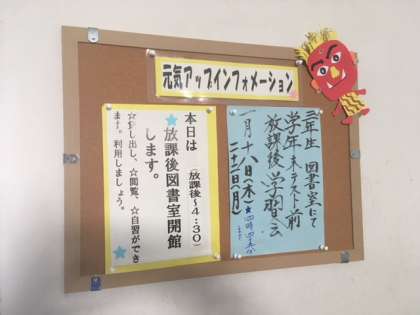 元気アップインフォメーション
三年生 図書室にて
学年末テスト前
放課後学習会
一月十八日(木)★四時四十五分
二十二日(月)
本日は(放課後~4:30)
★放課後図書室開館
します。
☆貸し出し、☆閲覧、☆自習ができ
ます。利用しましょう。★